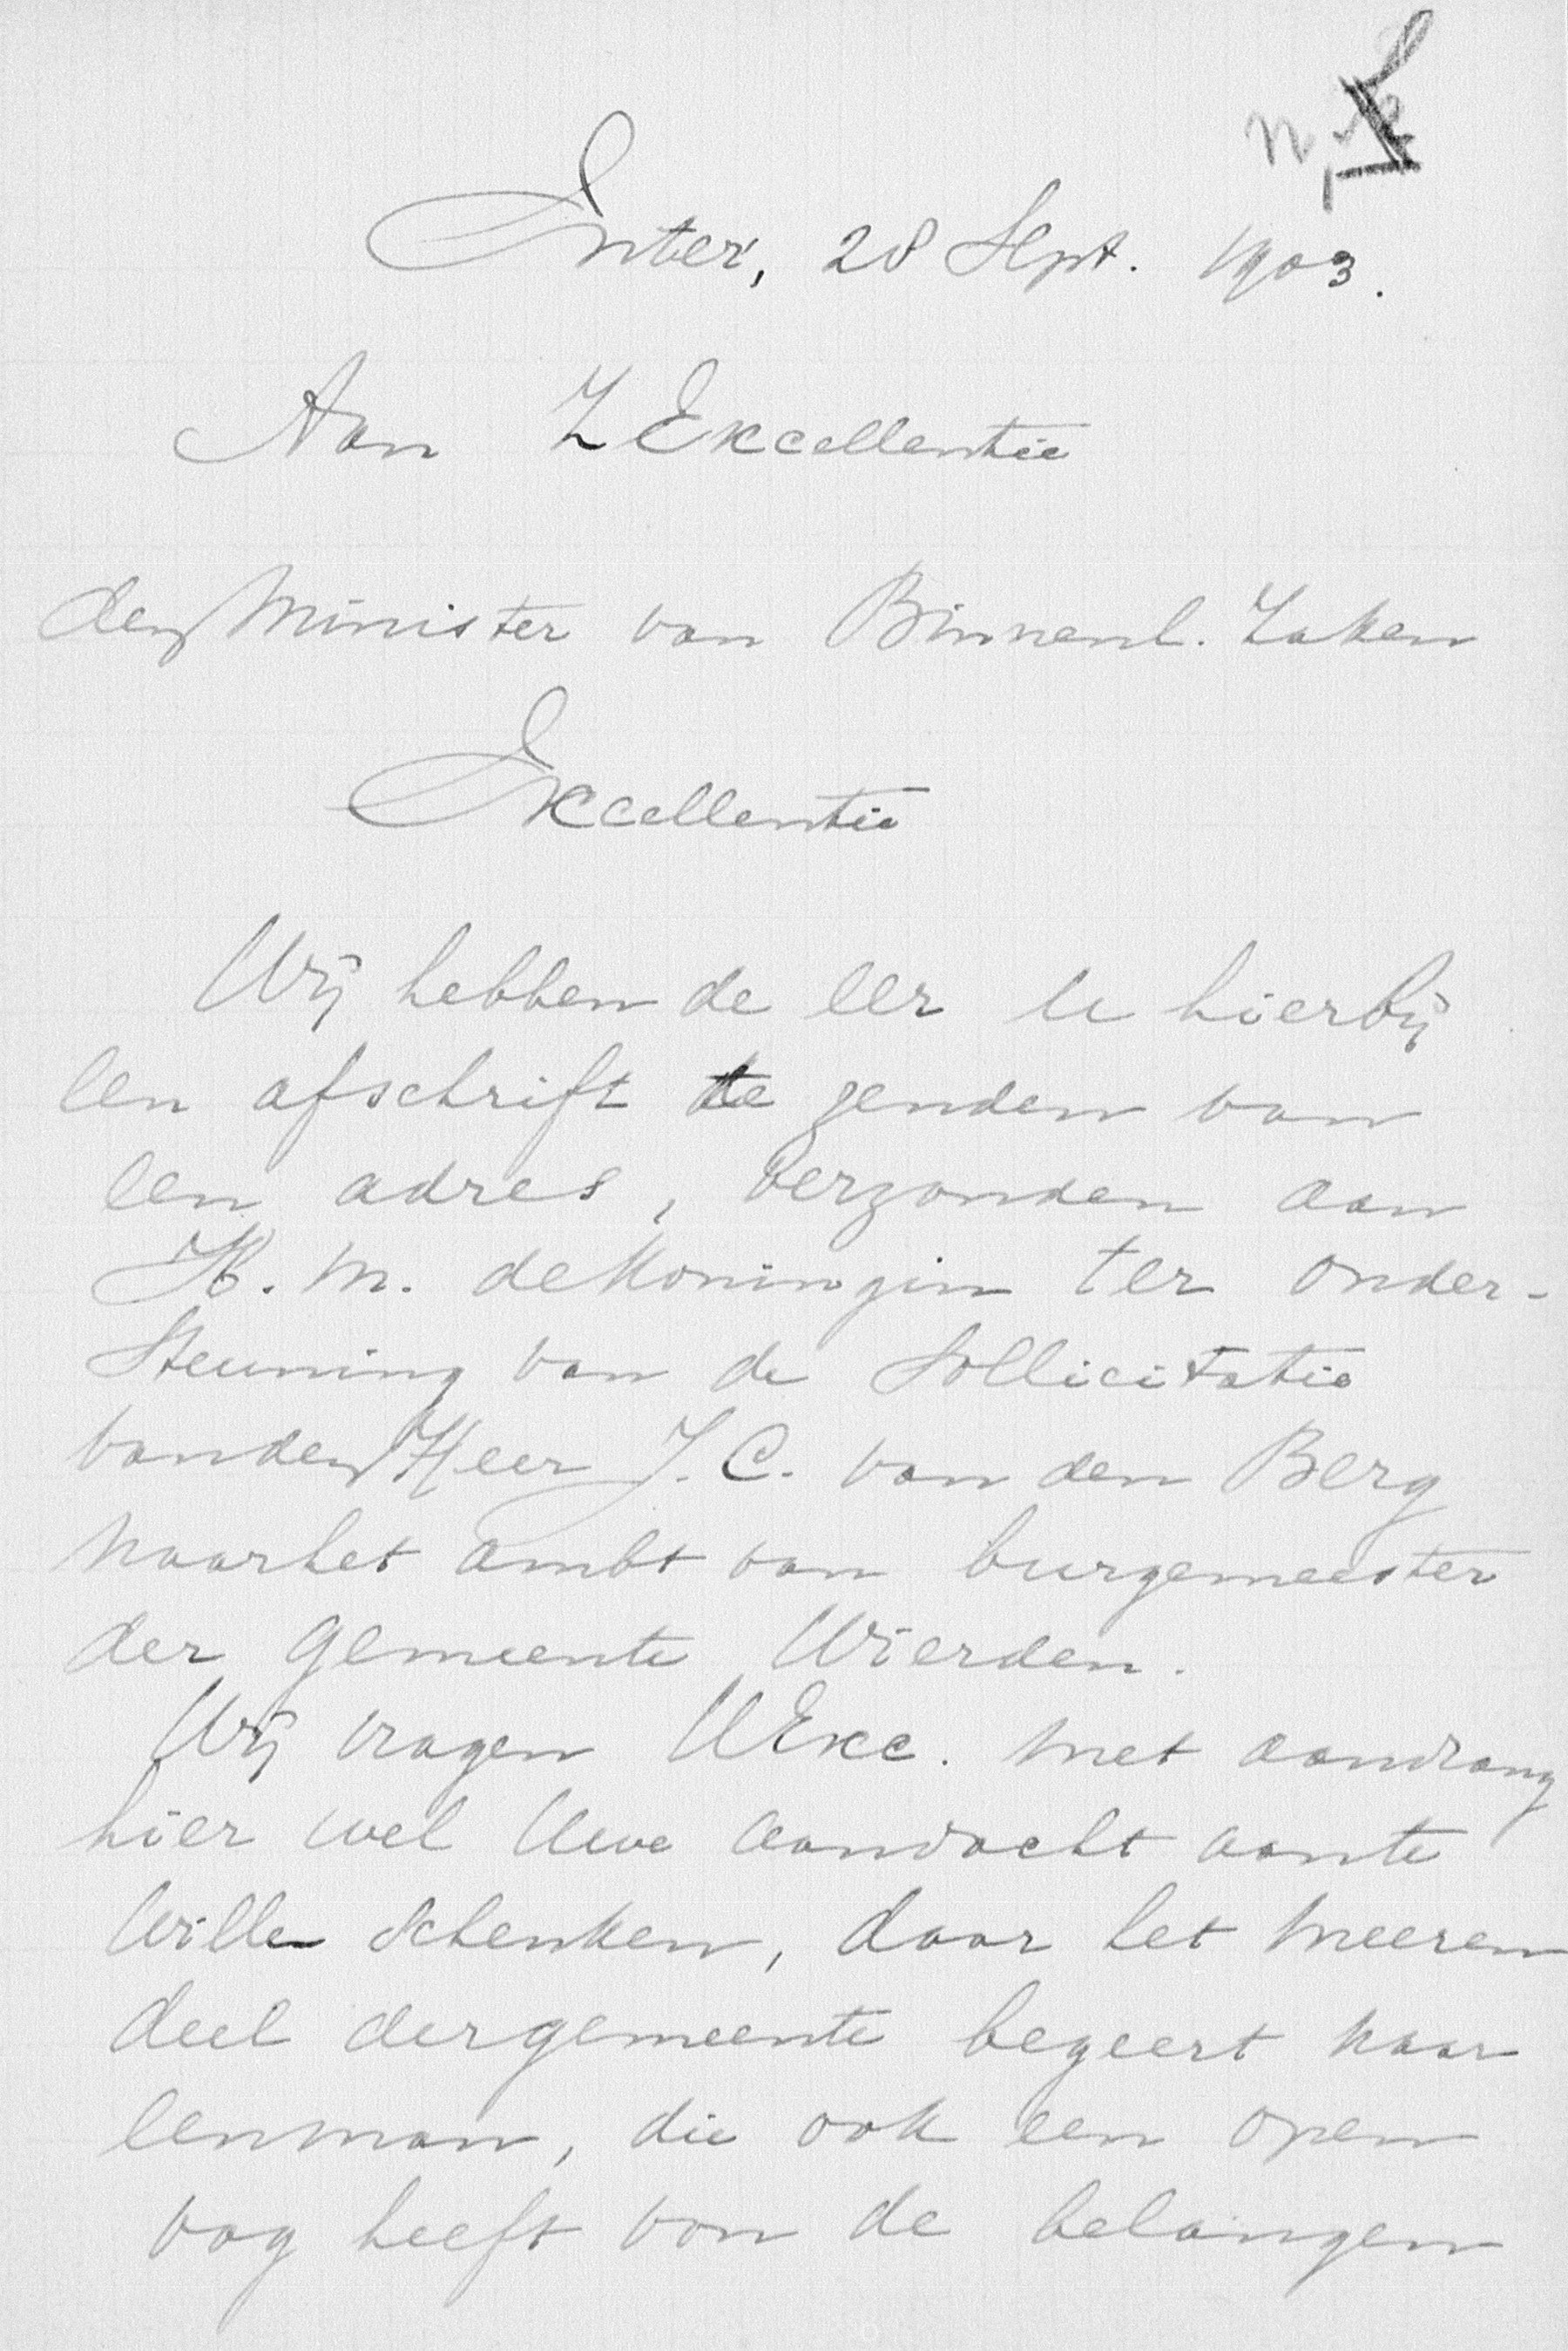 Enter, 28 Sept. 1903.
Aan Z Excellentie
den Minister van Binnenl. Zaken
Excellentie
Wij hebben de eer U hierbij
een afschrift te zenden van
een adres, verzonden aan
H. M. de Koningin ter onder-
steuning van de sollicitatie
van den Heer J. C. van den Berg
naar het ambt van burgemeester
der gemeente Wierden.
Wij vragen UExc. met aandrang
hier wel Uwe aandacht aan te
willen schenken, daar het meeren
deel der gemeente begeert naar
een man, die ook een open
oog heeft von de belangen